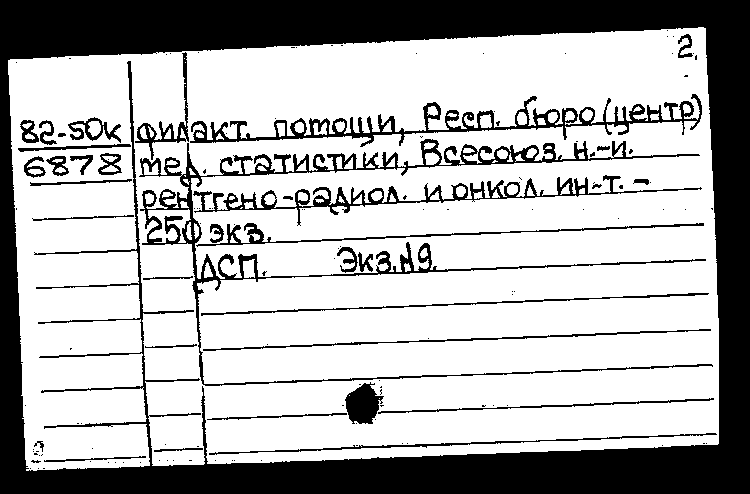 2.
82-50к филакт. помощи, Респ. бюро (центр)
6878 мед. статистики, Всесоюз. н.-и.
рентгено-радиол. и онкол. ин-т. –
250 экз.
ДСП. Экз.№9.